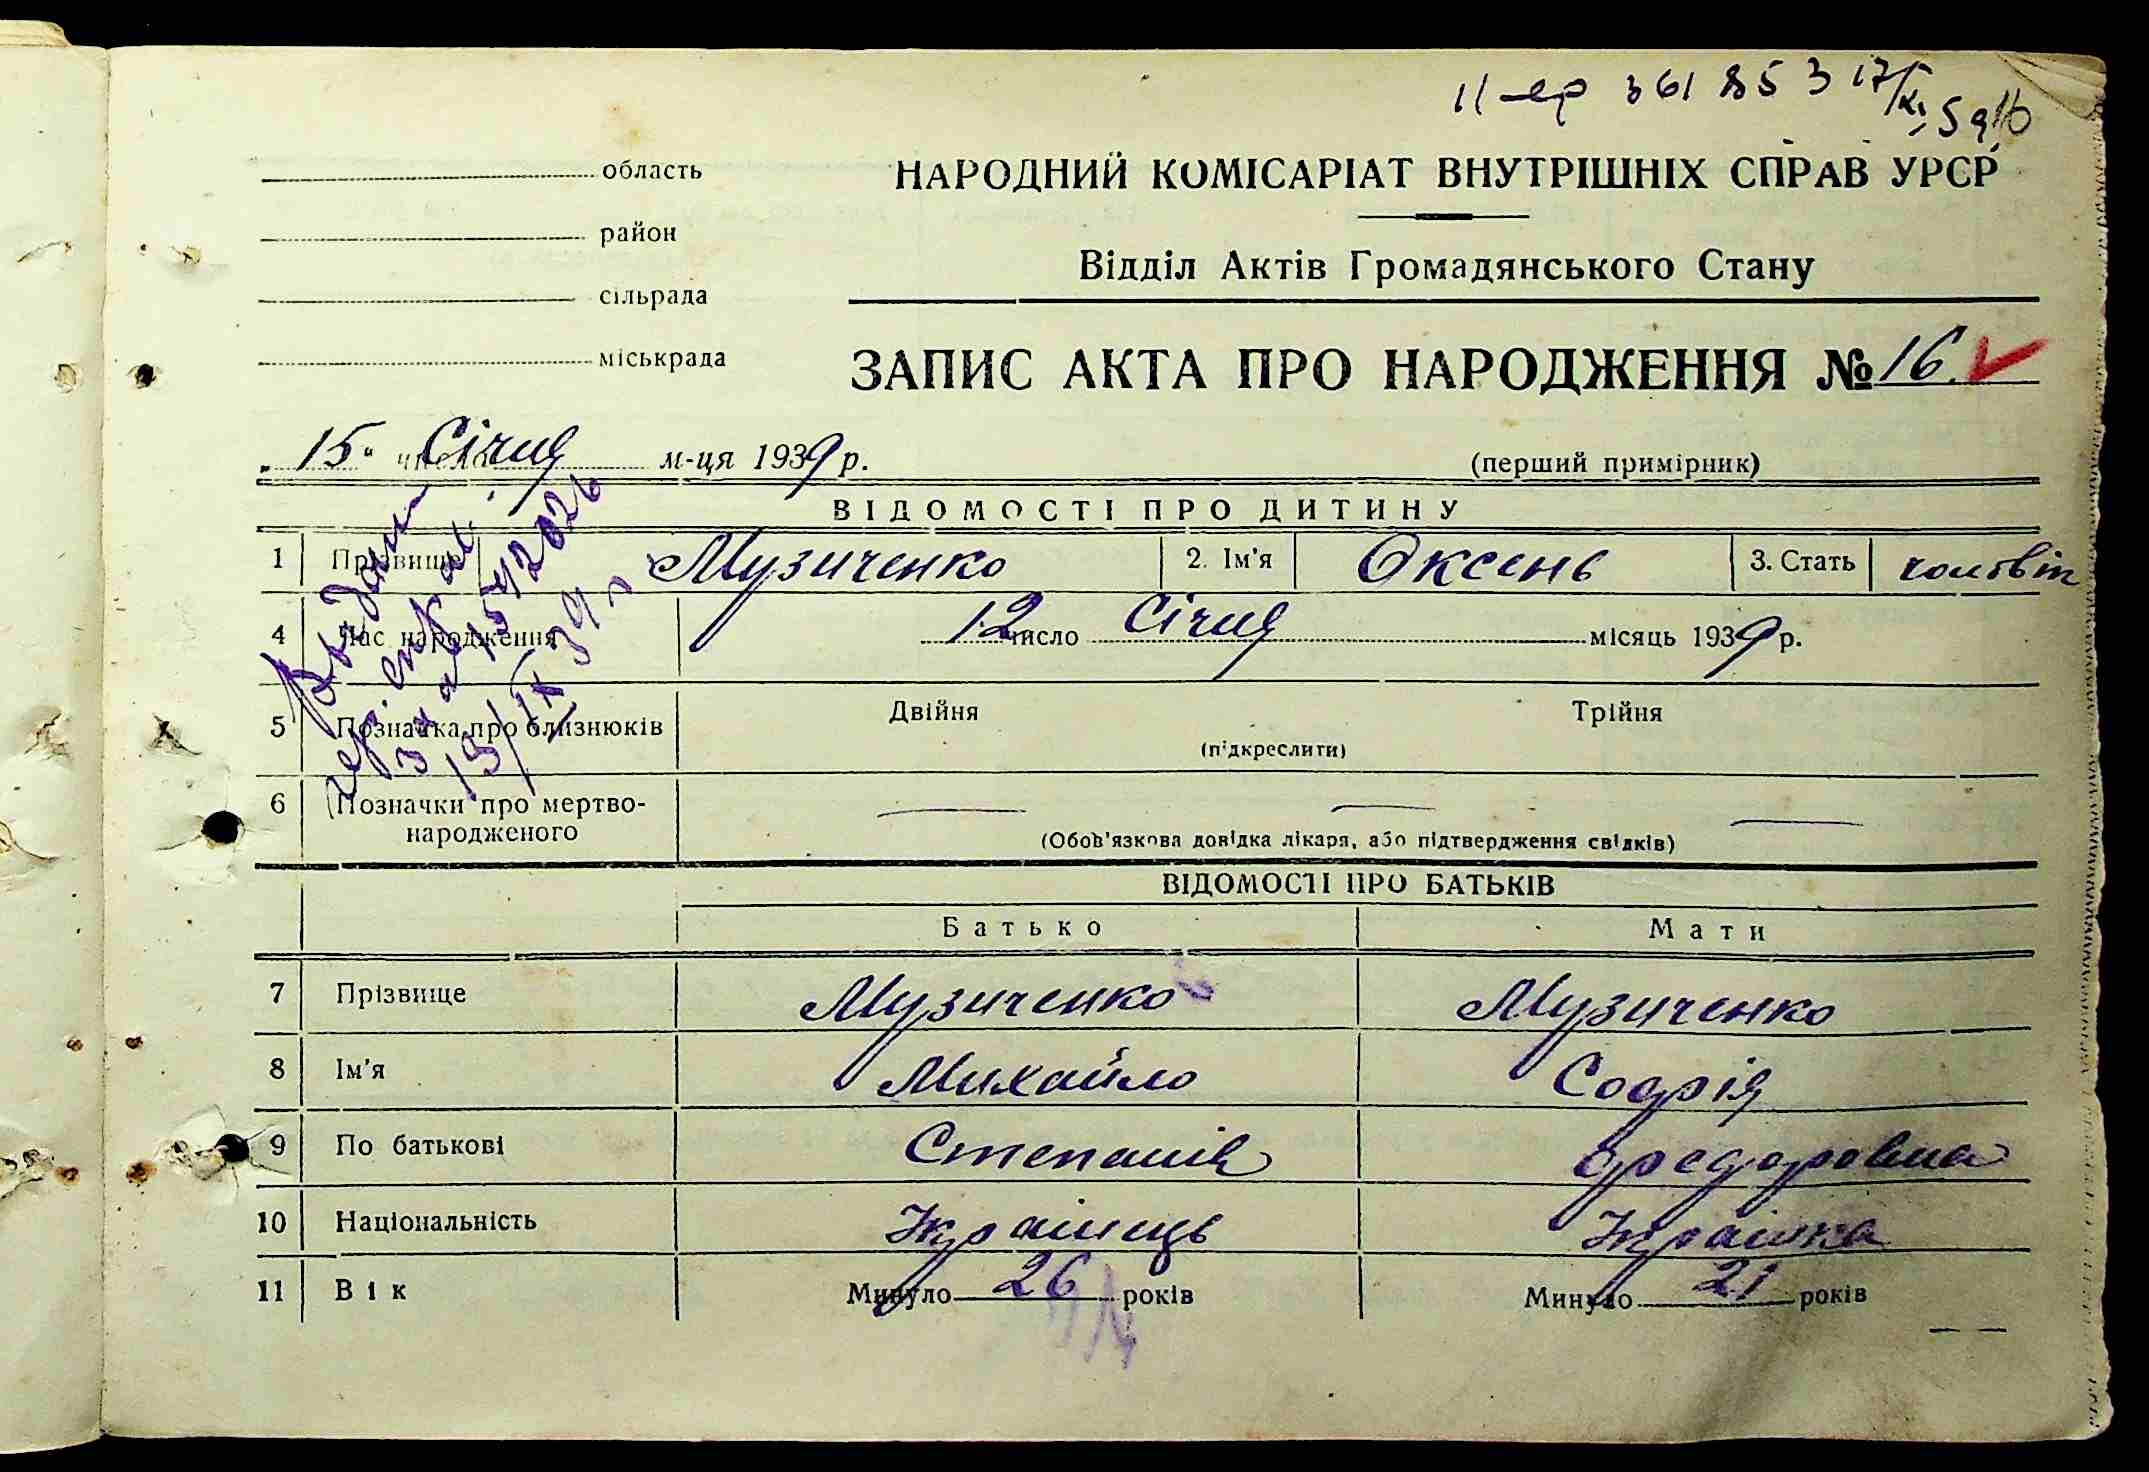 II-ер 361853 17/XI-59
область
НАРОДНИЙ КОМІСАРІАТ ВНУТРІШНІХ СПРАВ УРСР
район
Відділ Актів Громадянського Стану
сільрада
міськрада
ЗАПИС АКТА ПРО НАРОДЖЕННЯ № 16.
„15“ числа Січня м-ця 1939 р.
(перший примірник)
ВІДОМОСТІ ПРО ДИТИНУ
1 Прізвище Музиченко 2. Ім'я Оксень 3. Стать
4 Час народження 12 число Січня місяць 1939 р.
5 Позначка про близнюків Двійня Трійня
(підкреслити)
6 Позначки про мертво-
народженого
(Обов'язкова довідка лікаря, або підтвердження свідків)
ВІДОМОСТІ ПРО БАТЬКІВ
Батько Мати
7 Прізвище Музиченко Музиченко
8 Ім'я Михайло Софія
9 По батькові Степанів Федоровна
10 Національність Українець Українка
11 Вік Минуло 26 років Минуло 21 років